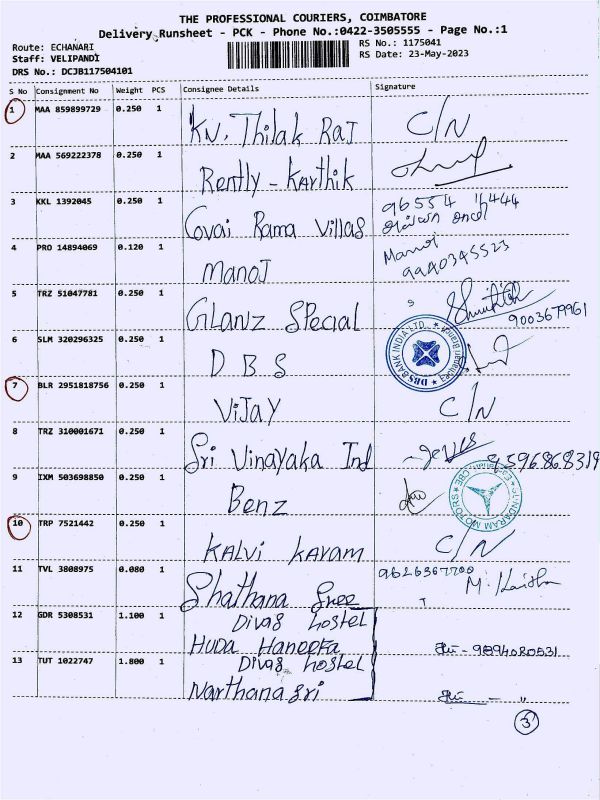 THE PROFESSIONAL COURIERS, COIMBATORE
Delivery Runsheet - PCK - Phone No.:0422-3505555 - Page No.:1
Route: ECHANARI
Staff: VELIPANDI
DRS No.: DCJB117504101
RS No.: 1175041
RS Date: 23-May-2023
S No Consignment No Weight PCS Consignee Details Signature
1 MAA 859899729 0.250 1 KN. Thilak Raj C/N
2 MAA 569222378 0.250 1 Rently - Karthik
3 KKL 1392045 0.250 1 Covai Rama Villas 96554
4 PRO 14894069 0.120 1 Manoj Manoj 9940345523
5 TRZ 51047781 0.250 1 Glanz Special 9003679961
6 SLM 320296325 0.250 1 DBS DBS BANK INDIA LTD.
7 BLR 2951818756 0.250 1 Vijay C/N
8 TRZ 310001671 0.250 1 Sri Vinayaka Ind
9 IXM 503698850 0.250 1 Benz SUNDARAM MOTORS CBE
10 TRP 7521442 0.250 1 Kalvi Kavam C/N
11 TVL 3808975 0.080 1 Shathana Sree 9626367700
12 GDR 5308531 1.100 1 Divas hostel
Huda Haneefa
13 TUT 1022747 1.800 1 Divas hostel
Narthana Sri
3